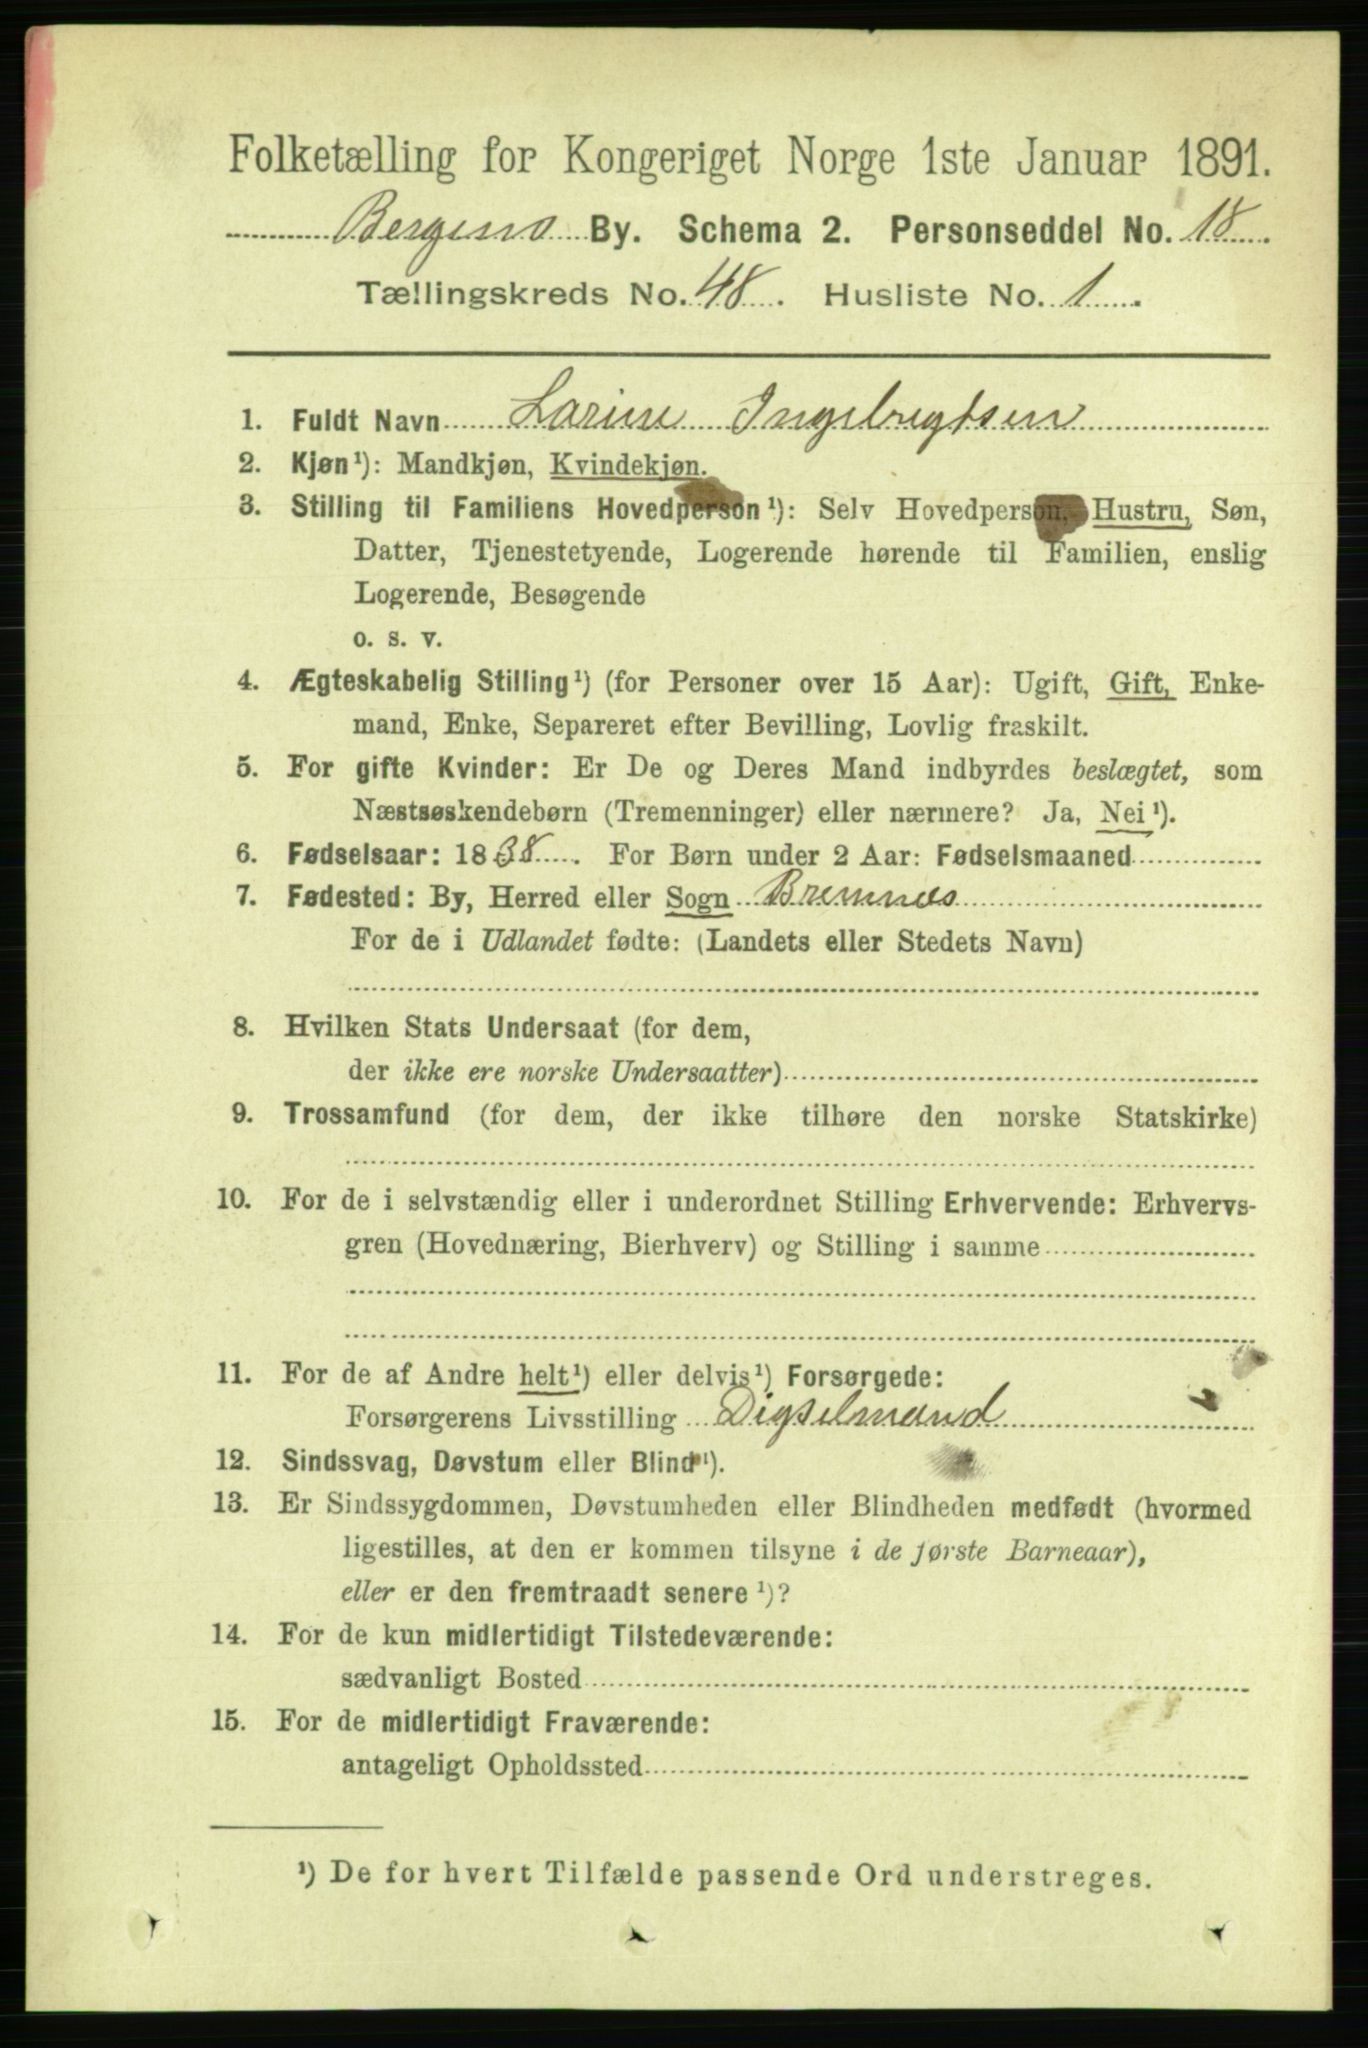 Folketælling for Kongeriget Norge 1ste Januar 1891.
Bergens By. Schema 2. Personseddel No. 18.
Tællingskreds No. 48. Husliste No. 1.
1. Fuldt Navn Larine Ingebrigtsen
2. Kjøn¹): Mandkjøn, Kvindekjøn.
3. Stilling til Familiens Hovedperson¹): Selv Hovedperson, Hustru, Søn,
Datter, Tjenestetyende, Logerende hørende til Familien, enslig
Logerende, Besøgende
o. s. v.
4. Ægteskabelig Stilling¹) (for Personer over 15 Aar): Ugift, Gift, Enke-
mand, Enke, Separeret efter Bevilling, Lovlig fraskilt.
5. For gifte Kvinder: Er De og Deres Mand indbyrdes beslægtet, som
Næstsøskendebørn (Tremenninger) eller nærmere? Ja, Nei¹).
6. Fødselsaar: 1838. For Børn under 2 Aar: Fødselsmaaned
7. Fødested: By, Herred eller Sogn Bremnæs
For de i Udlandet fødte: (Landets eller Stedets Navn)
8. Hvilken Stats Undersaat (for dem,
der ikke ere norske Undersaatter)
9. Trossamfund (for dem, der ikke tilhøre den norske Statskirke)
10. For de i selvstændig eller i underordnet Stilling Erhvervende: Erhvervs-
gren (Hovednæring, Bierhverv) og Stilling i samme
11. For de af Andre helt¹) eller delvis¹) Forsørgede:
Forsørgerens Livsstilling Digselmand
12. Sindssvag, Døvstum eller Blind¹).
13. Er Sindssygdommen, Døvstumheden eller Blindheden medfødt (hvormed
ligestilles, at den er kommen tilsyne i de første Barneaar),
eller er den fremtraadt senere¹)?
14. For de kun midlertidigt Tilstedeværende:
sædvanligt Bosted
15. For de midlertidigt Fraværende:
antageligt Opholdssted
¹) De for hvert Tilfælde passende Ord understreges.